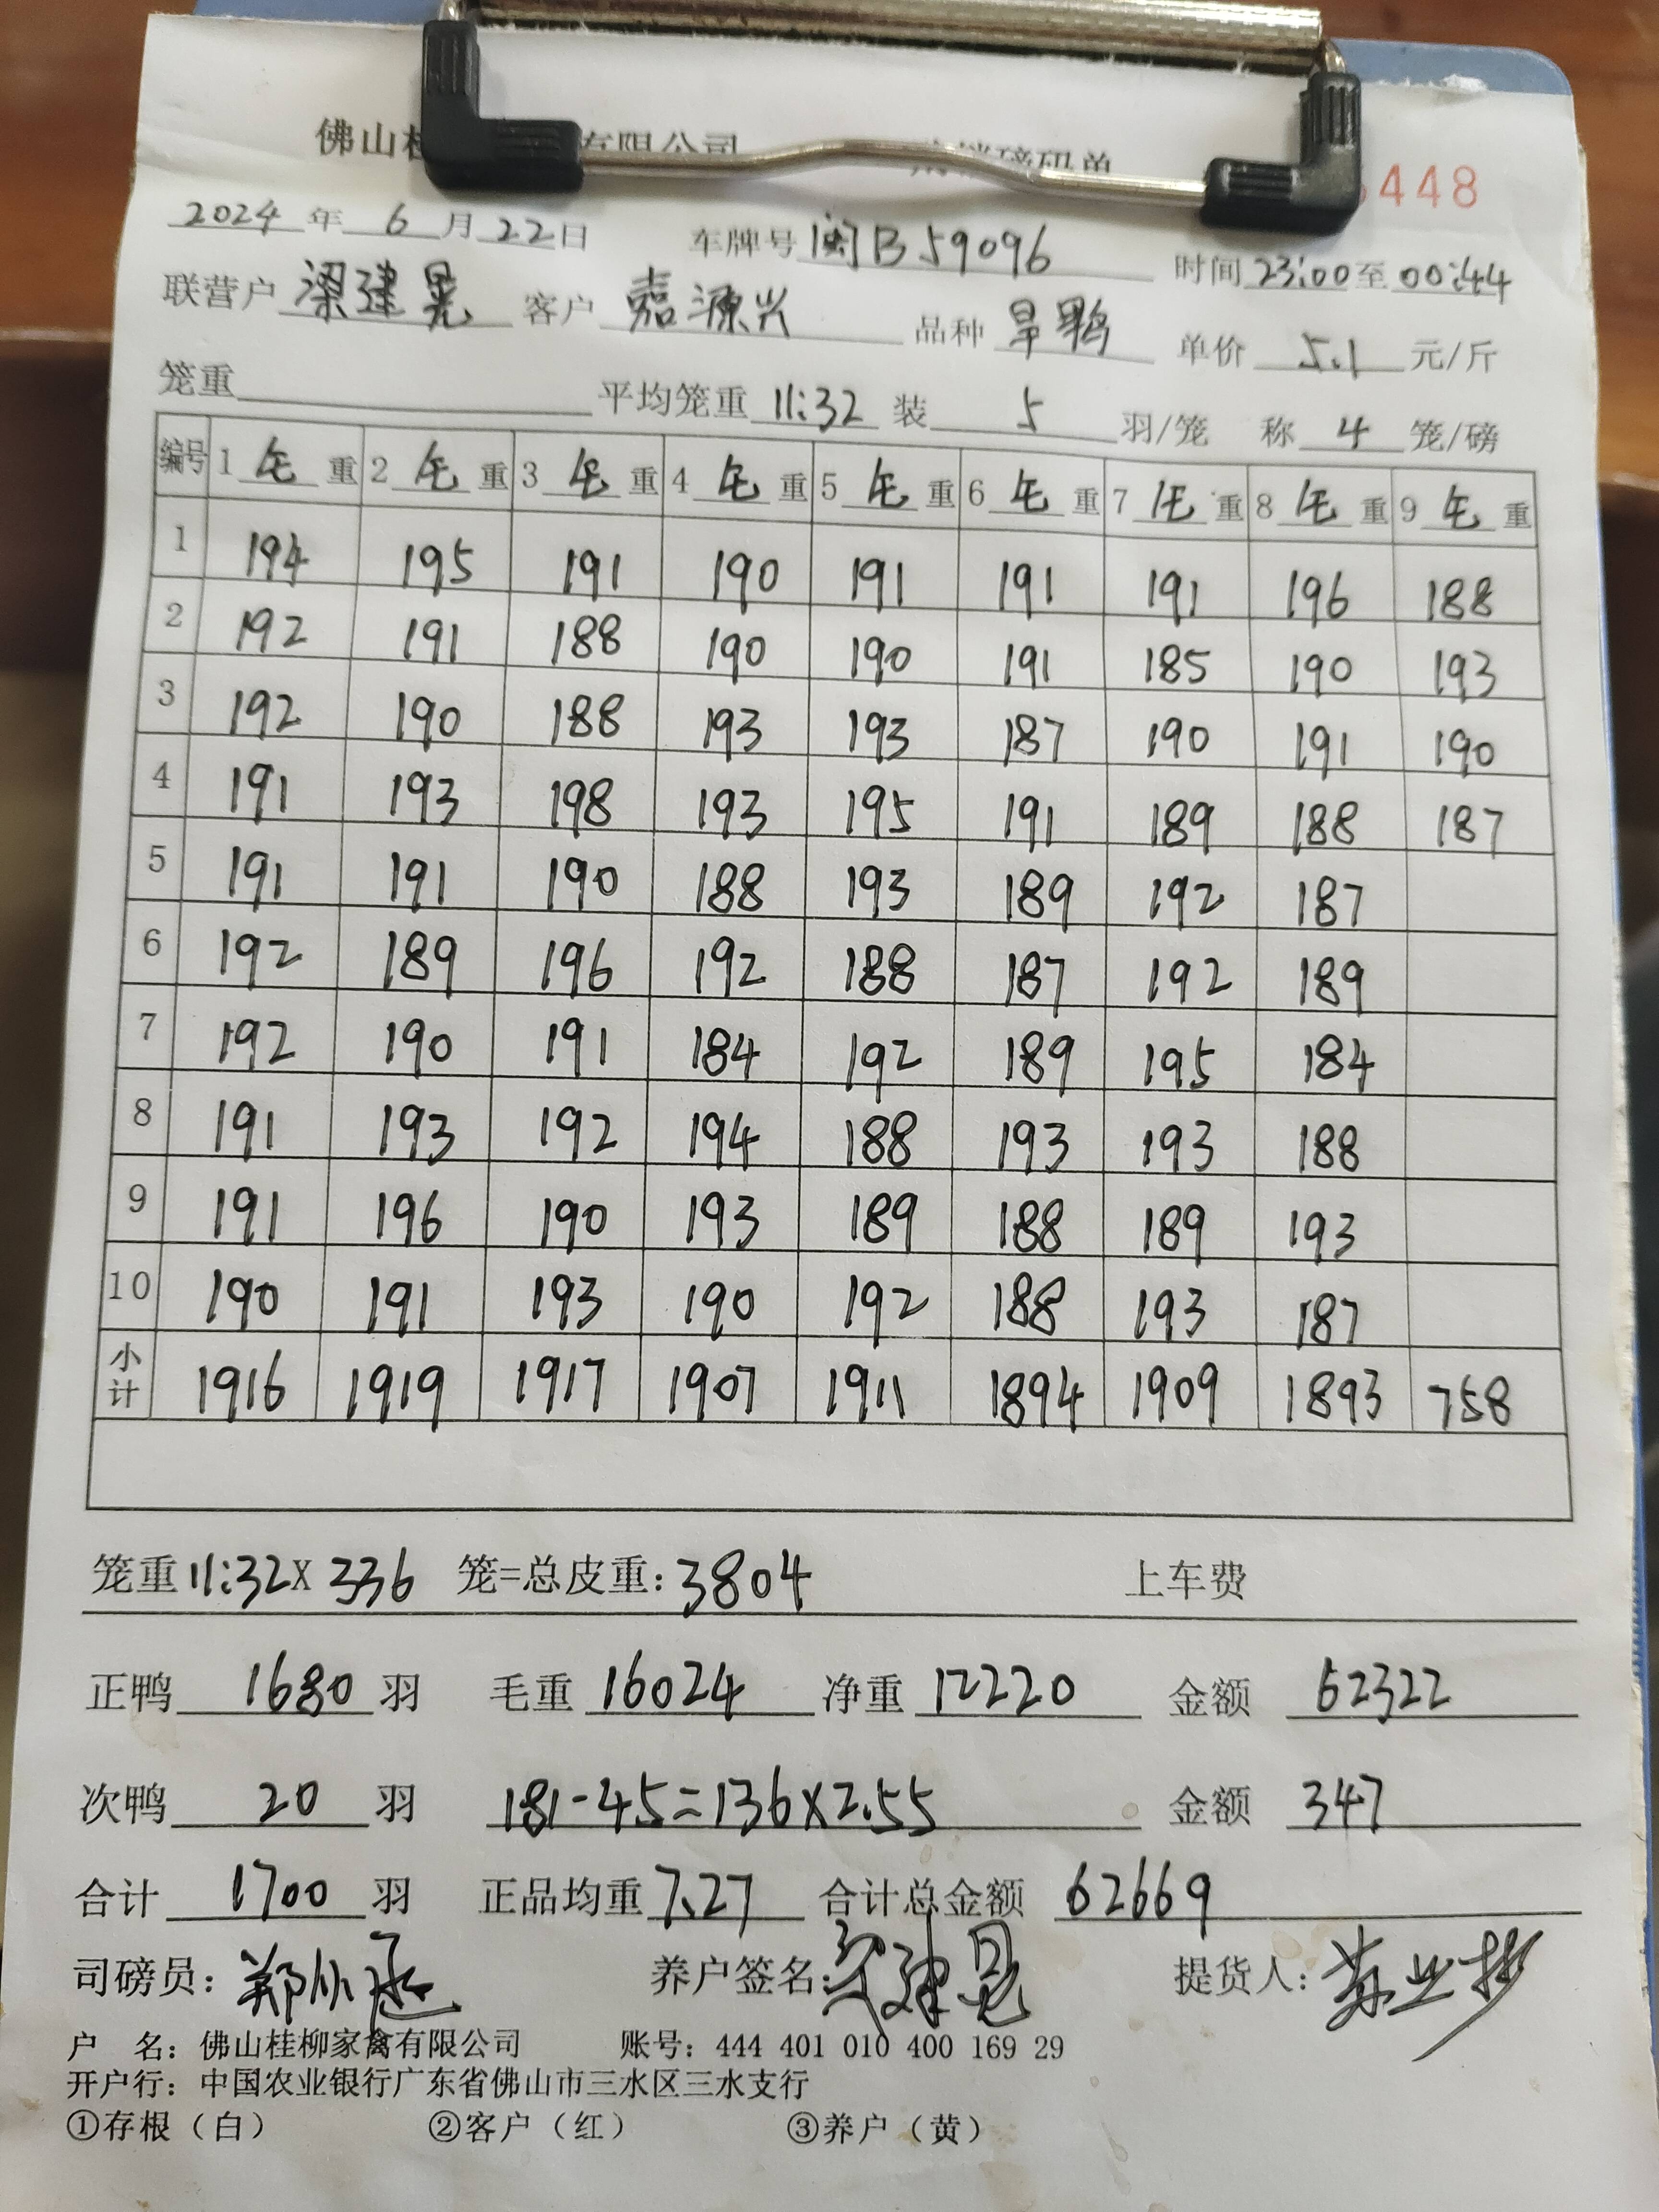 佛山桂 有限公司 磅码单 448
2024年6月22日 车牌号闽B59096 时间23:00至00:44
联营户梁建晃 客户嘉源兴 品种旱鸭 单价5.1元/斤
笼重 平均笼重11:32装5羽/笼 称4笼/磅
编号 1毛重 2毛重 3毛重 4毛重 5毛重 6毛重 7毛重 8毛重 9毛重
1 194 195 191 190 191 191 191 196 188
2 192 191 188 190 190 191 185 190 193
3 192 190 188 193 193 187 190 191 190
4 191 193 198 193 195 191 189 188 187
5 191 191 190 188 193 189 192 187
6 192 189 196 192 188 187 192 189
7 192 190 191 184 192 189 195 184
8 191 193 192 194 188 193 193 188
9 191 196 190 193 189 188 189 193
10 190 191 193 190 192 188 193 187
小计 1916 1919 1917 1907 1911 1894 1909 1893 758
笼重11:32X336 笼=总皮重:3804 上车费
正鸭1680羽 毛重16024 净重12220 金额62322
次鸭20羽 181-45=136X2.55 金额347
合计1700羽 正品均重7.27 合计总金额62669
司磅员: 养户签名:梁建晃 提货人:
户 名: 佛山桂柳家禽有限公司 账号: 444 401 010 400 169 29
开户行: 中国农业银行广东省佛山市三水区三水支行
①存根（白） ②客户（红） ③养户（黄）